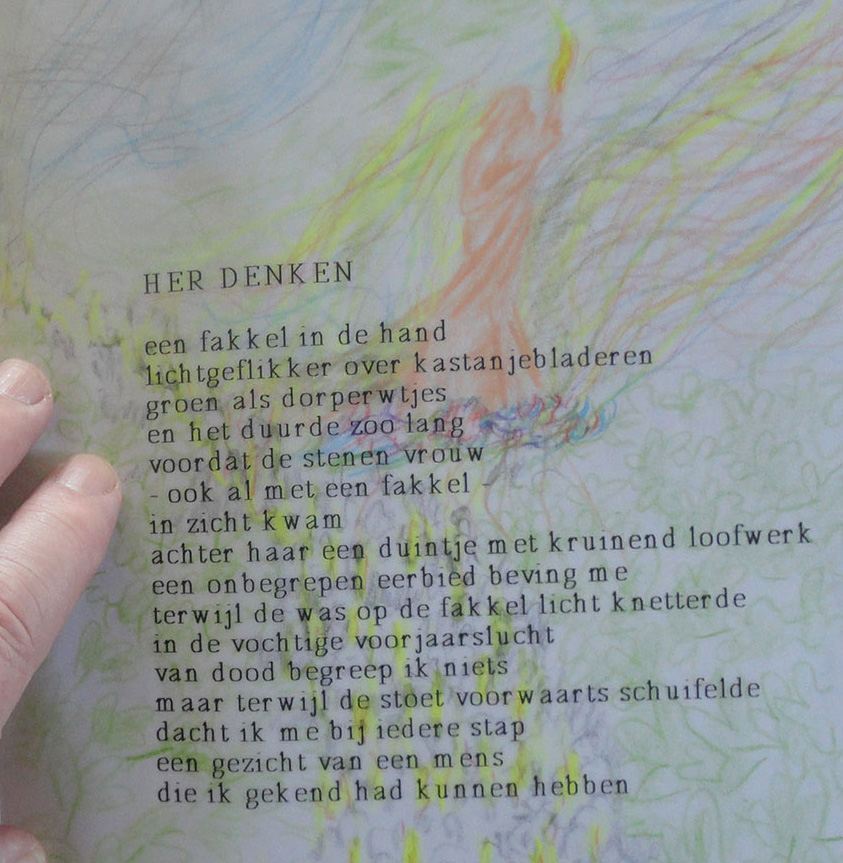 HER DENKEN
een fakkel in de hand
lichtgeflikker over kastanjebladeren
groen als dorperwtjes
en het duurde zoo lang
voordat de stenen vrouw
- ook al met een fakkel -
in zicht kwam
achter haar een duintje met kruinend loofwerk
een onbegrepen eerbied beving me
terwijl de was op de fakkel licht knetterde
in de vochtige voorjaarslucht
van dood begreep ik niets
maar terwijl de stoet voorwaarts schuifelde
dacht ik me bij iedere stap
een gezicht van een mens
die ik gekend had kunnen hebben